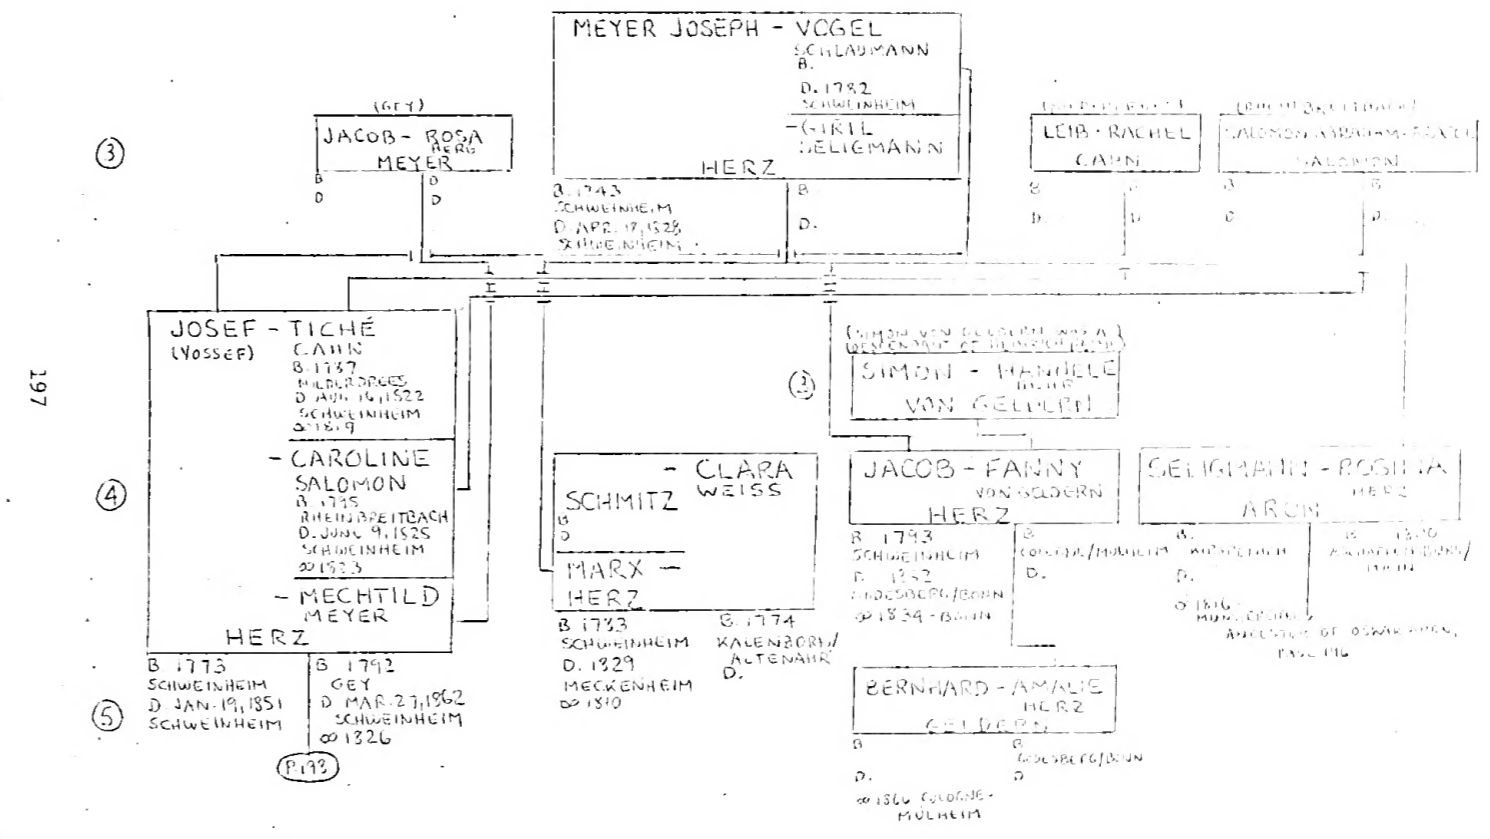 MEYER JOSEPH - VOGEL
SCHLAUMANN
B.
D. 1782
SCHWEINHEIM
- GIRIL
SELIGMANN
HERZ
B. 1743
SCHWEINHEIM
D. APR. 17, 1828
SCHWEINHEIM
B.
D.
(GEY)
JACOB - ROSA
BERG
MEYER
B
D
B
D
③
LEIB - RACHEL
CAHN
B
D.
B
D
SALOMON ABRAHAM -
SALOMON
B
D
B
D.
JOSEF - TICHÉ
(YOSSEF)
CAHN
B. 1787
D AUG 16, 1822
SCHWEINHEIM
∞ 1819
- CAROLINE
SALOMON
B. 1795
RHEINBREITBACH
D. JUNE 9, 1825
SCHWEINHEIM
∞ 1823
- MECHTILD
MEYER
HERZ
B 1773
SCHWEINHEIM
D JAN. 19, 1851
SCHWEINHEIM
B 1792
GEY
D MAR. 27, 1862
SCHWEINHEIM
∞ 1826
P. 193
197
④
⑤
- CLARA
WEISS
SCHMITZ
B
D
MARX -
HERZ
B 1783
SCHWEINHEIM
D. 1829
MECKENHEIM
∞ 1810
B. 1774
KALENBORN/
ALTENAHR
D.
(SIMON VON GELDERN WAS A
③
SIMON - HANNELE
VON GELDERN
JACOB - FANNY
VON GELDERN
HERZ
B 1793
SCHWEINHEIM
D
GODESBERG/BONN
∞ 1834 - BONN
B
COLOGNE/MULHEIM
D.
SELIGMANN - ROSINA
HERZ
ARON
B.
D.
B
∞ 1816
ANCESTER OF
PAGE 196
BERNHARD - AMALIE
HERZ
GELDERN
B
D.
∞ 1866 COLOGNE -
MULHEIM
B
GODESBERG/BONN
D